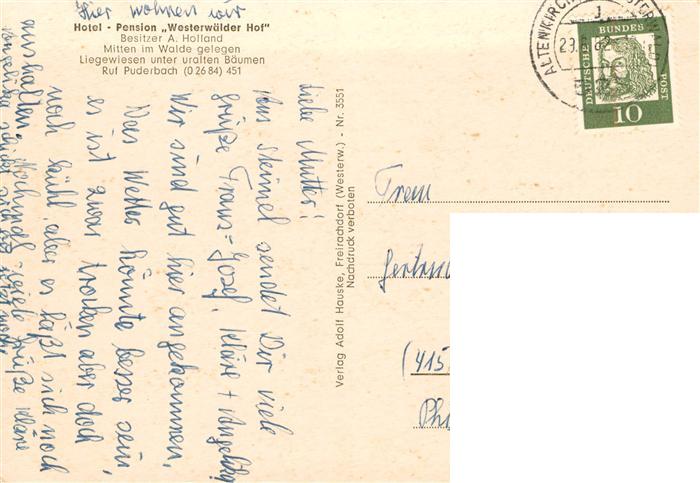 Hier wohnen wir
Hotel - Pension „Westerwälder Hof"
Besitzer A. Holland
Mitten im Walde gelegen
Liegewiesen unter uralten Bäumen
Ruf Puderbach (0 26 84) 451
Liebe Mutter!
Aus Steimel sendet Dir viele
Grüße Franz=Josef, Kläre + Angelika
Wir sind gut hier angekommen,
Das Wetter könnte besser sein,
es ist zwar trocken aber doch
noch kühl, aber es läßt sich noch
aushalten. Nochmal viele Grüße Kläre
Verlag Adolf Hauske, Freirachdorf (Westerw.) - Nr. 3551
Nachdruck verboten
DEUTSCHE BUNDESPOST
10
Frau
(415